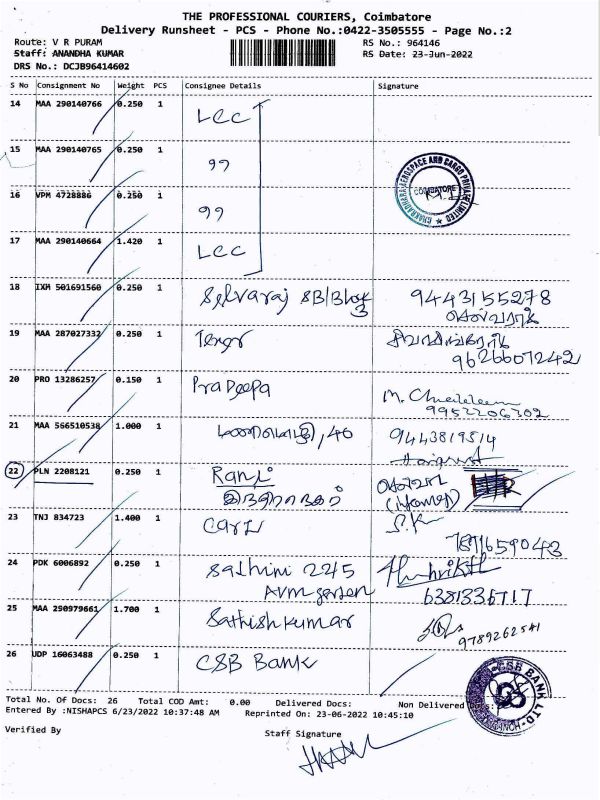 THE PROFESSIONAL COURIERS, Coimbatore
Delivery Runsheet - PCS - Phone No.:0422-3505555 - Page No.:2
Route: V R PURAM RS No.: 964146
Staff: ANANDHA KUMAR RS Date: 23-Jun-2022
DRS No.: DCJB96414602
S No Consignment No Weight PCS Consignee Details Signature
14 MAA 290140766 0.250 1 LCC
15 MAA 290140765 0.250 1 ,,
CHAKRADHARA AEROSPACE AND CARGO PRIVATE LIMITED
COIMBATORE
16 VPM 4728886 0.250 1 ,,
17 MAA 290140664 1.420 1 LCC
18 IXM 501691560 0.250 1 Selvaraj 9443155278
செல்வராஜ்
19 MAA 287027332 0.250 1
9626607242
20 PRO 13286257 0.150 1 Pradeepa
21 MAA 566510538 1.000 1 9443819514
22 PLN 2208121 0.250 1 Rani
23 TNJ 834723 1.400 1
24 PDK 6006892 0.250 1 Sathini 2245
AVM garden
25 MAA 290979661 1.700 1 Sathish kumar
9789262541
26 UDP 16063488 0.250 1 CSB Bank
CSB BANK LTD
Total No. Of Docs: 26 Total COD Amt: 0.00 Delivered Docs: Non Delivered Docs:
Entered By :NISHAPCS 6/23/2022 10:37:48 AM Reprinted On: 23-06-2022 10:45:10
Verified By Staff Signature